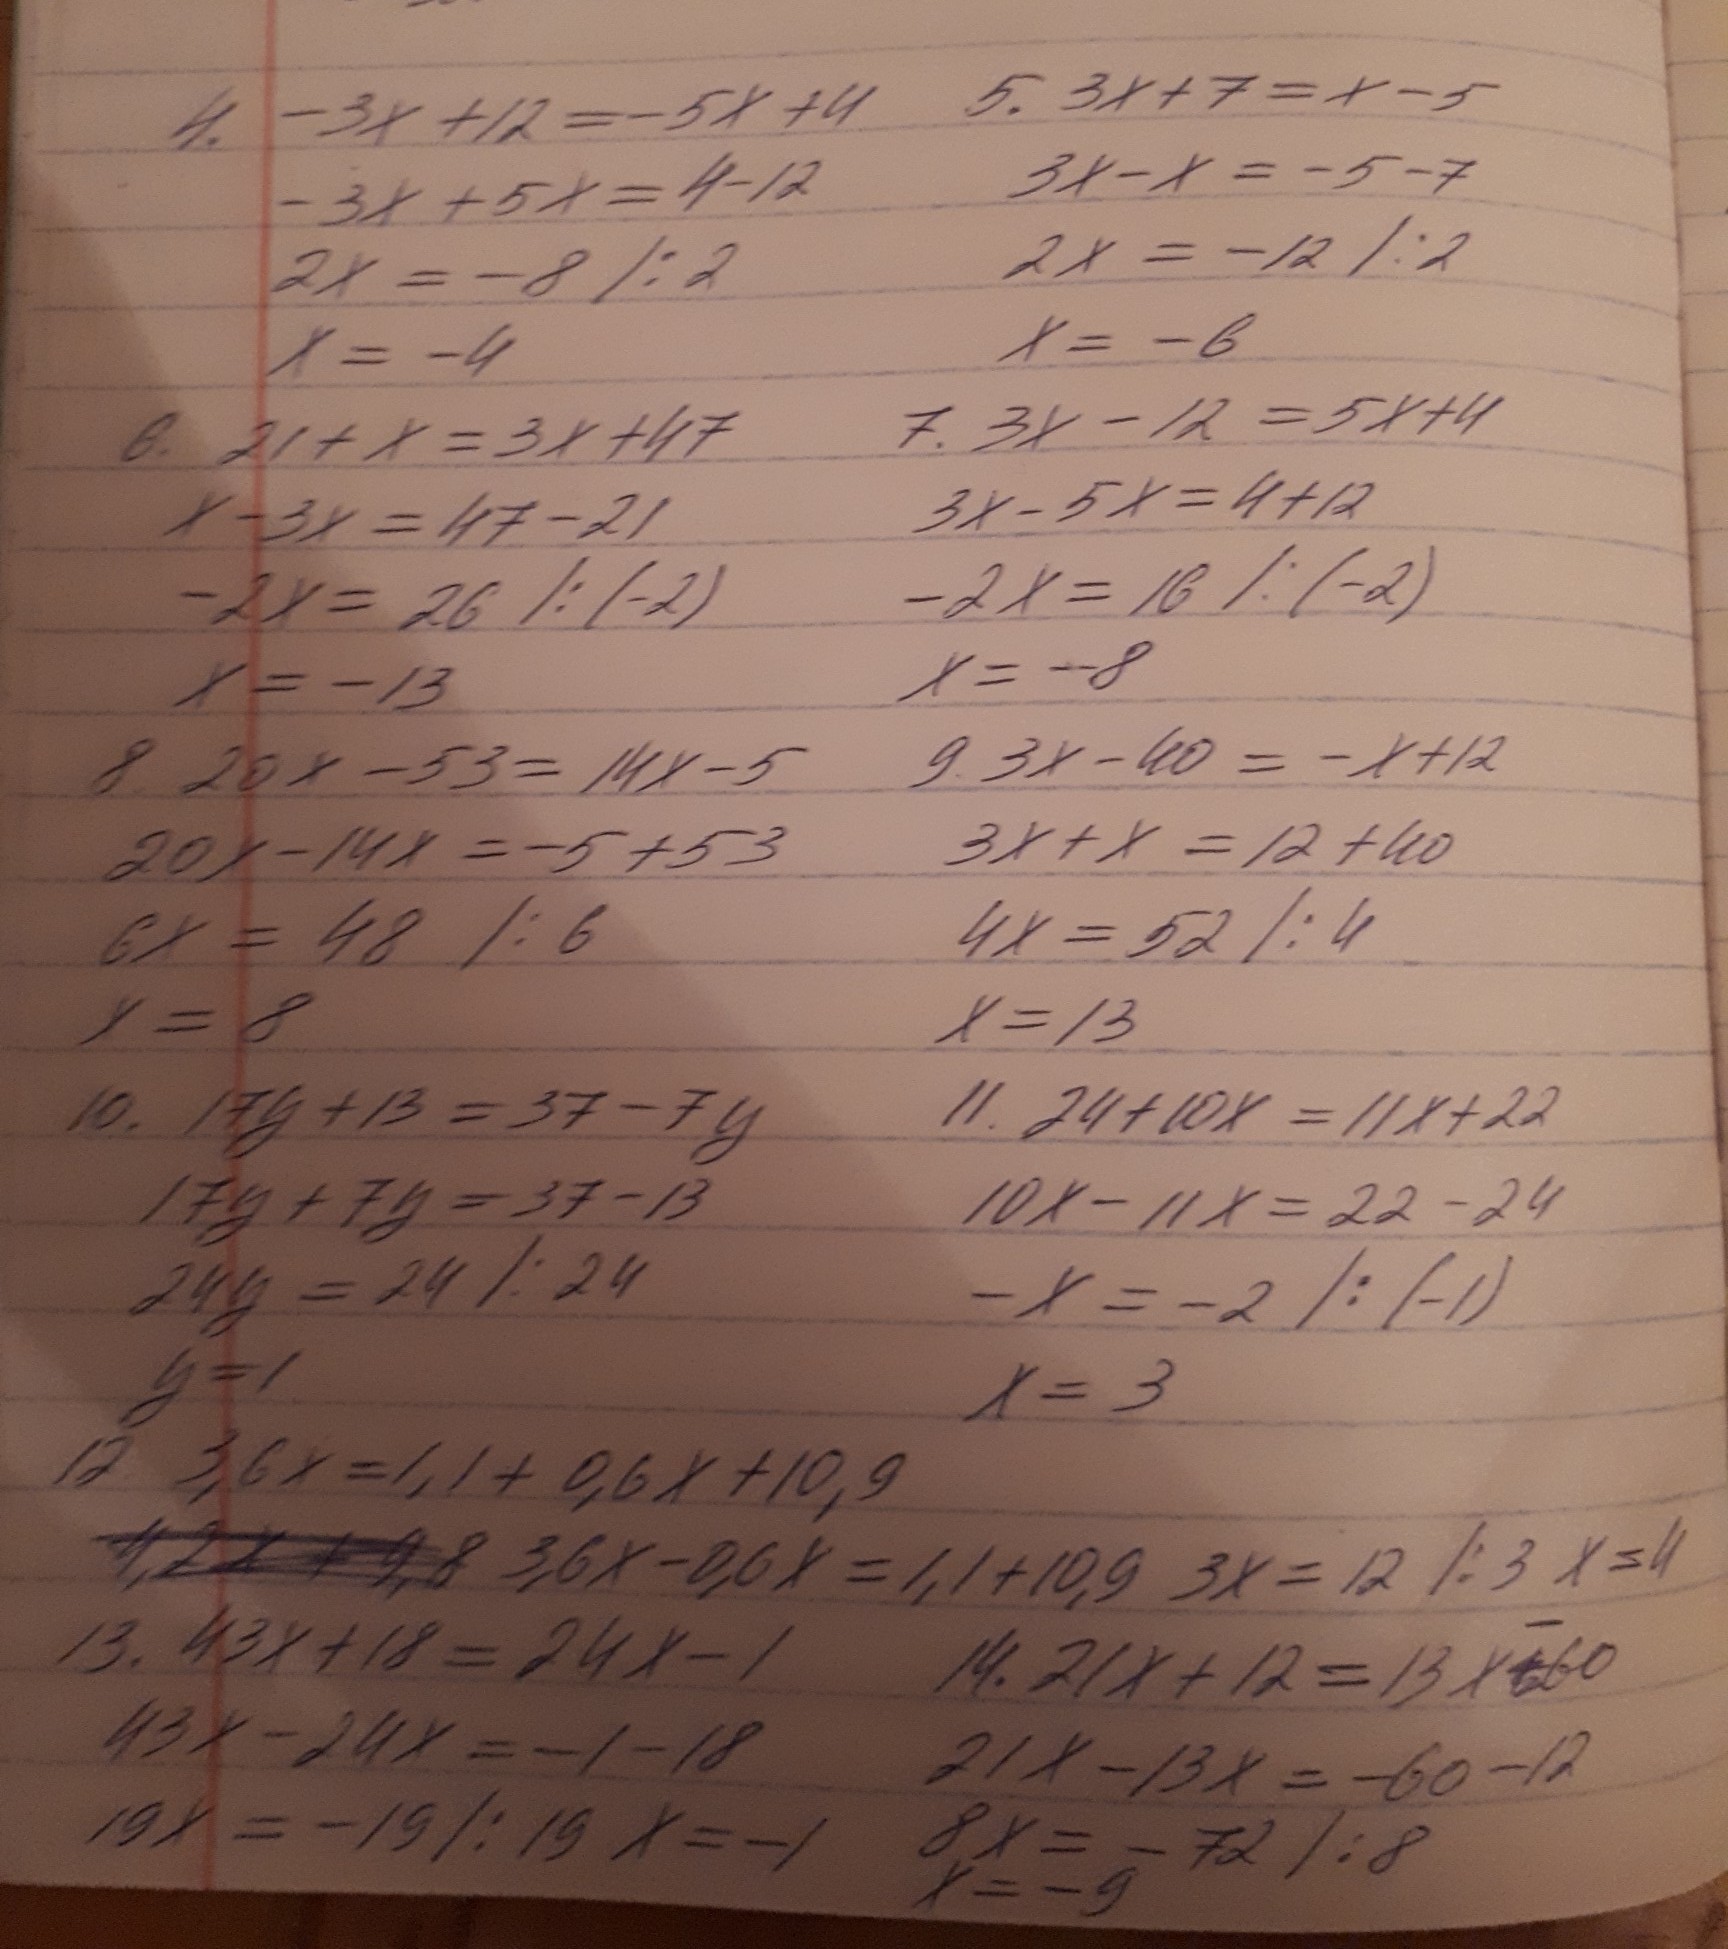 4. -3x+12=-5x+4
-3x+5x=4-12
2x=-8 /:2
x=-4
5. 3x+7=x-5
3x-x=-5-7
2x=-12 /:2
x=-6
6. 21+x=3x+47
x-3x=47-21
-2x=26 /:(-2)
x=-13
7. 3x-12=5x+4
3x-5x=4+12
-2x=16 /:(-2)
x=-8
8. 20x-53=14x-5
20x-14x=-5+53
6x=48 /:6
x=8
9. 3x-40=-x+12
3x+x=12+40
4x=52 /:4
x=13
10. 17y+13=37-7y
17y+7y=37-13
24y=24 /:24
y=1
11. 24+10x=11x+22
10x-11x=22-24
-x=-2 /:(-1)
x=3
12 3,6x=1,1+0,6x+10,9
3,6x-0,6x=1,1+10,9 3x=12 /:3 x=4
13. 43x+18=24x-1
43x-24x=-1-18
19x=-19 /:19 x=-1
14. 21x+12=13x-60
21x-13x=-60-12
8x=-72 /:8
x=-9